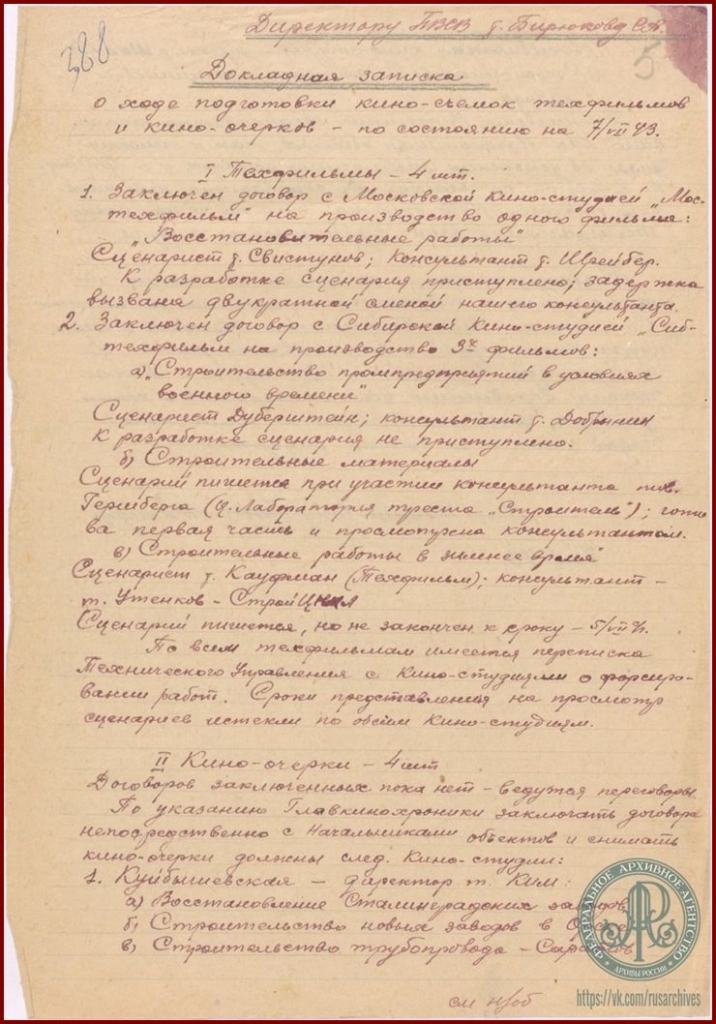 388
Директору ПВСВ т. Бирюкову
5
Докладная записка
о ходе подготовки кино-съемок техфильмов
и кино-очерков – по состоянию на 7/VII 43.
I Техфильмы – 4 шт.
1. Заключен договор с Московской Кино-студией „Мос-
техфильм" на производство одного фильма:
„Восстановительные работы"
Сценарист т. Свистунов; Консультант т. Шрейбер.
К разработке сценария приступлено; задержка
вызвана двукратной сменой нашего консультанта.
2. Заключен договор с Сибирской Кино-студией „Сиб-
техфильм на производство 3х фильмов:
а) „Строительство промпредприятий в условиях
военного времени"
Сценарист Дуберштейн; консультант т. Добрынин
К разработке сценария не приступлено.
б) Строительные материалы
Сценарий пишется при участии консультанта тов.
(Ц. Лаборатория треста „Строитель"); гото-
ва первая часть и просмотрена консультантом.
в) Строительные работы в зимнее время"
Сценарист т. Кауфман (Техфильм); консультант –
т. Утенков – СтройЦНИЛ
Сценарий пишется, но не закончен к сроку – 5/VII
По всем техфильмам имеется переписка
Технического Управления с Кино-студиями о форсиро-
вании работ. Сроки представления на просмотр
сценариев истекли по всем Кино-студиям.
II Кино-очерки – 4 шт
Договоров заключенных пока нет – ведутся переговоры.
По указанию Главкинохроники заключать договора
непосредственно с Начальниками объектов и снимать
кино-очерки должны след. Кино-студии:
1. Куйбышевская – директор т. Ким:
а) Восстановление Сталинградских заводов
б) Строительство новых заводов в
в) Строительство трубопровода –
см н/об
ФЕДЕРАЛЬНОЕ АРХИВНОЕ АГЕНТСТВО
АРХИВЫ РОССИИ
https://vk.com/rusarchives